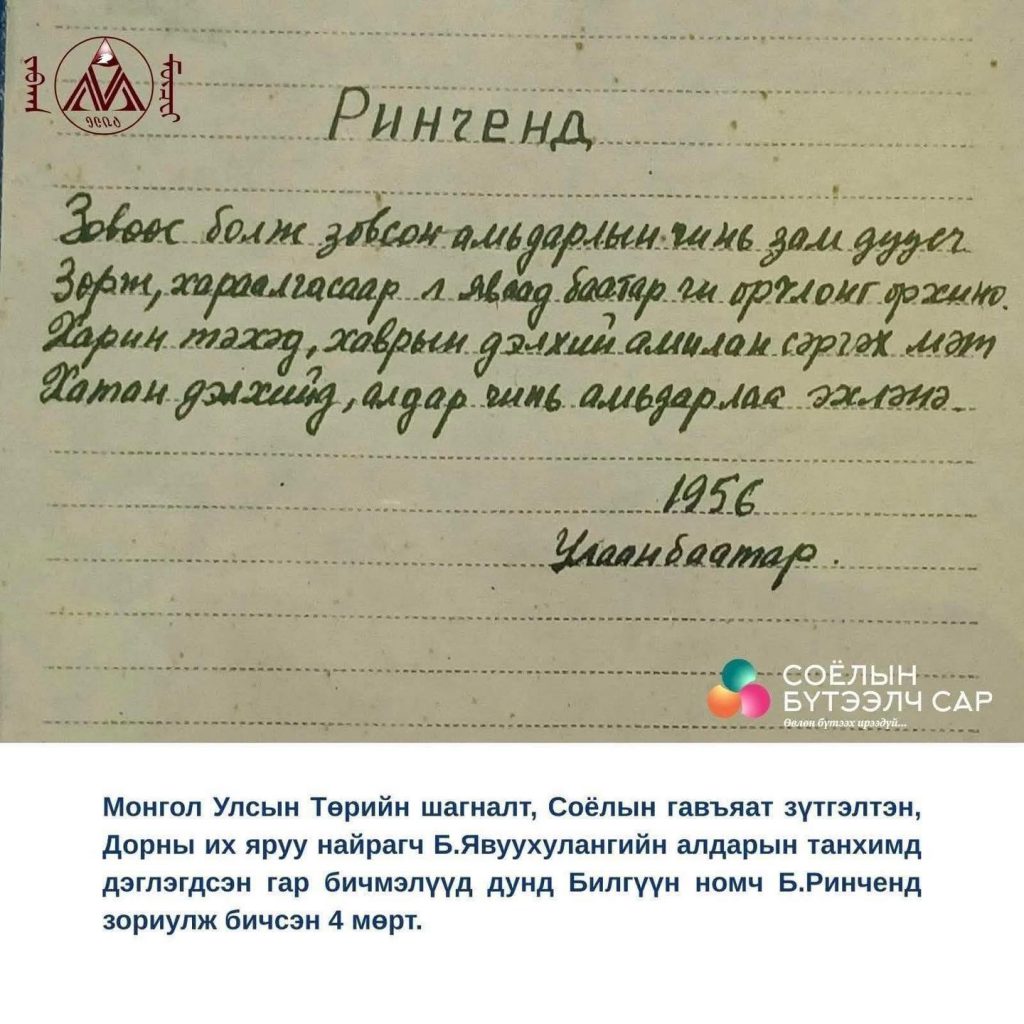 Ринченд
Зовоос болж зовсон амьдарлын чинь зам дуусч
Зорж, хараалгасаар л яваад баатар чи орчлонг орхино.
Харин тэхэд, хаврын дэлхий амилан сэргэх мэт
Хатан дэлхийд, алдар чинь амьдарлаа эхлэнэ.
1956
Улаанбаатар.
СОЁЛЫН
БҮТЭЭЛЧ САР
Өвлөн бүтээх ирээдүй...
Монгол Улсын Төрийн шагналт, Соёлын гавъяат зүтгэлтэн,
Дорны их яруу найрагч Б.Явуухулангийн алдарын танхимд
дэглэгдсэн гар бичмэлүүд дунд Билгүүн номч Б.Ринченд
зориулж бичсэн 4 мөрт.